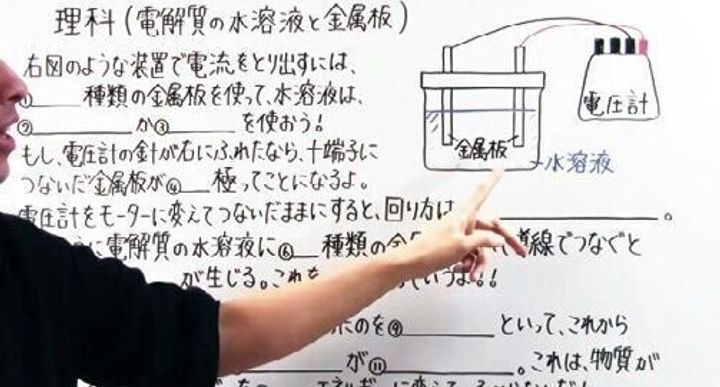 理科(電解質の水溶液と金属板)
右図のような装置で電流をとり出すには、
①____種類の金属板を使って、水溶液は、
②________か③______を使おう!
もし、電圧計の針が右にふれたなら、+端子に
つないだ金属板が④__極ってことになるよ。
電圧計をモーターに変えてつないだままにすると、回り方は、____________。
に電解質の水溶液に⑥__種類の金 導線でつなぐと
が生じる。これを いうよ!!
たのを⑨______といって、これから
が⑪________。これは、物質が
電圧計
金属板
水溶液